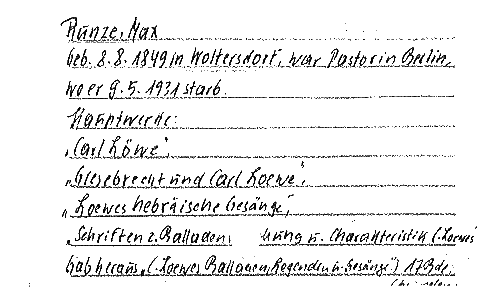 Runze, Max
geb. 8.8.1849 in Woltersdorf, war Pastor in Berlin,
wo er 9.5.1931 starb.
Hauptwerke:
"Carl Löwe",
"Giesebrecht und Carl Loewe",
"Loewes hebräische Gesänge",
"Schriften z. Balladen u. Charakteristik C. Loewes
Gab heraus "C. Loewes Balladen, Legenden u. Gesänge") 17 Bde.